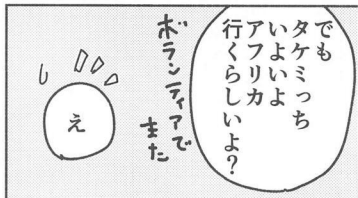 でも
タケミっち
いよいよ
アフリカ
行くらしいよ?
ボランティアで
また
え